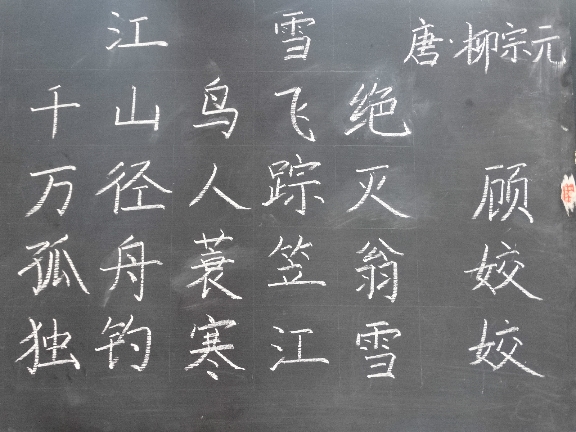 江雪 唐·柳宗元
千山鸟飞绝
万径人踪灭
孤舟蓑笠翁
独钓寒江雪
顾姣姣